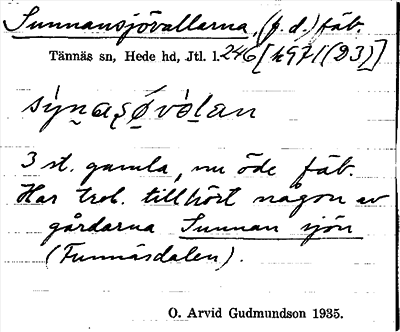 Sunnansjövallarna, (f.d.) fäb.
Tännäs sn, Hede hd, Jtl. l. 246 [h971(23)]
3 st. gamla, nu öde fäb.
Har trol. tillhört någon av
gårdarna Sunnan sjön
(Funnäsdalen).
O. Arvid Gudmundson 1935.